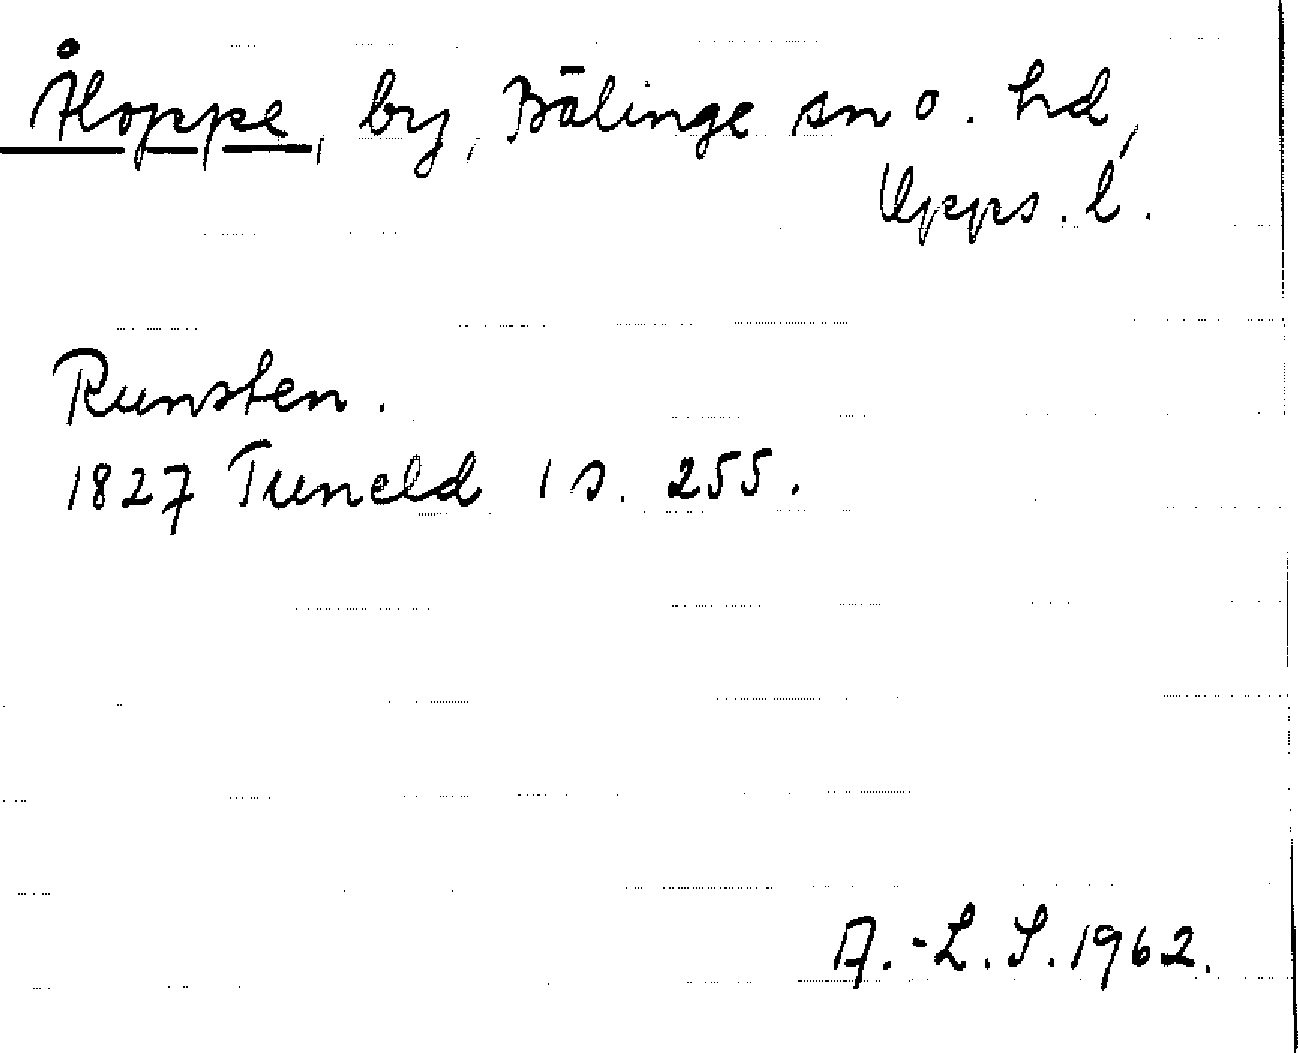 Åloppe, by, Bälinge sn o. hd,
Upps. l.
Runsten.
1827 Tuneld 1 s. 255.
A.-L. S. 1962.